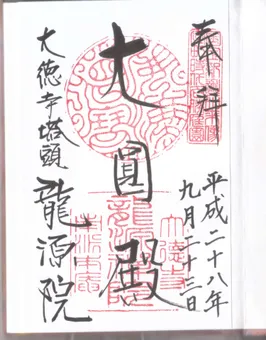 奉拝
平成二十八年
九月二十三日
大圓殿
大徳寺塔頭
龍源院
大徳寺
龍源院